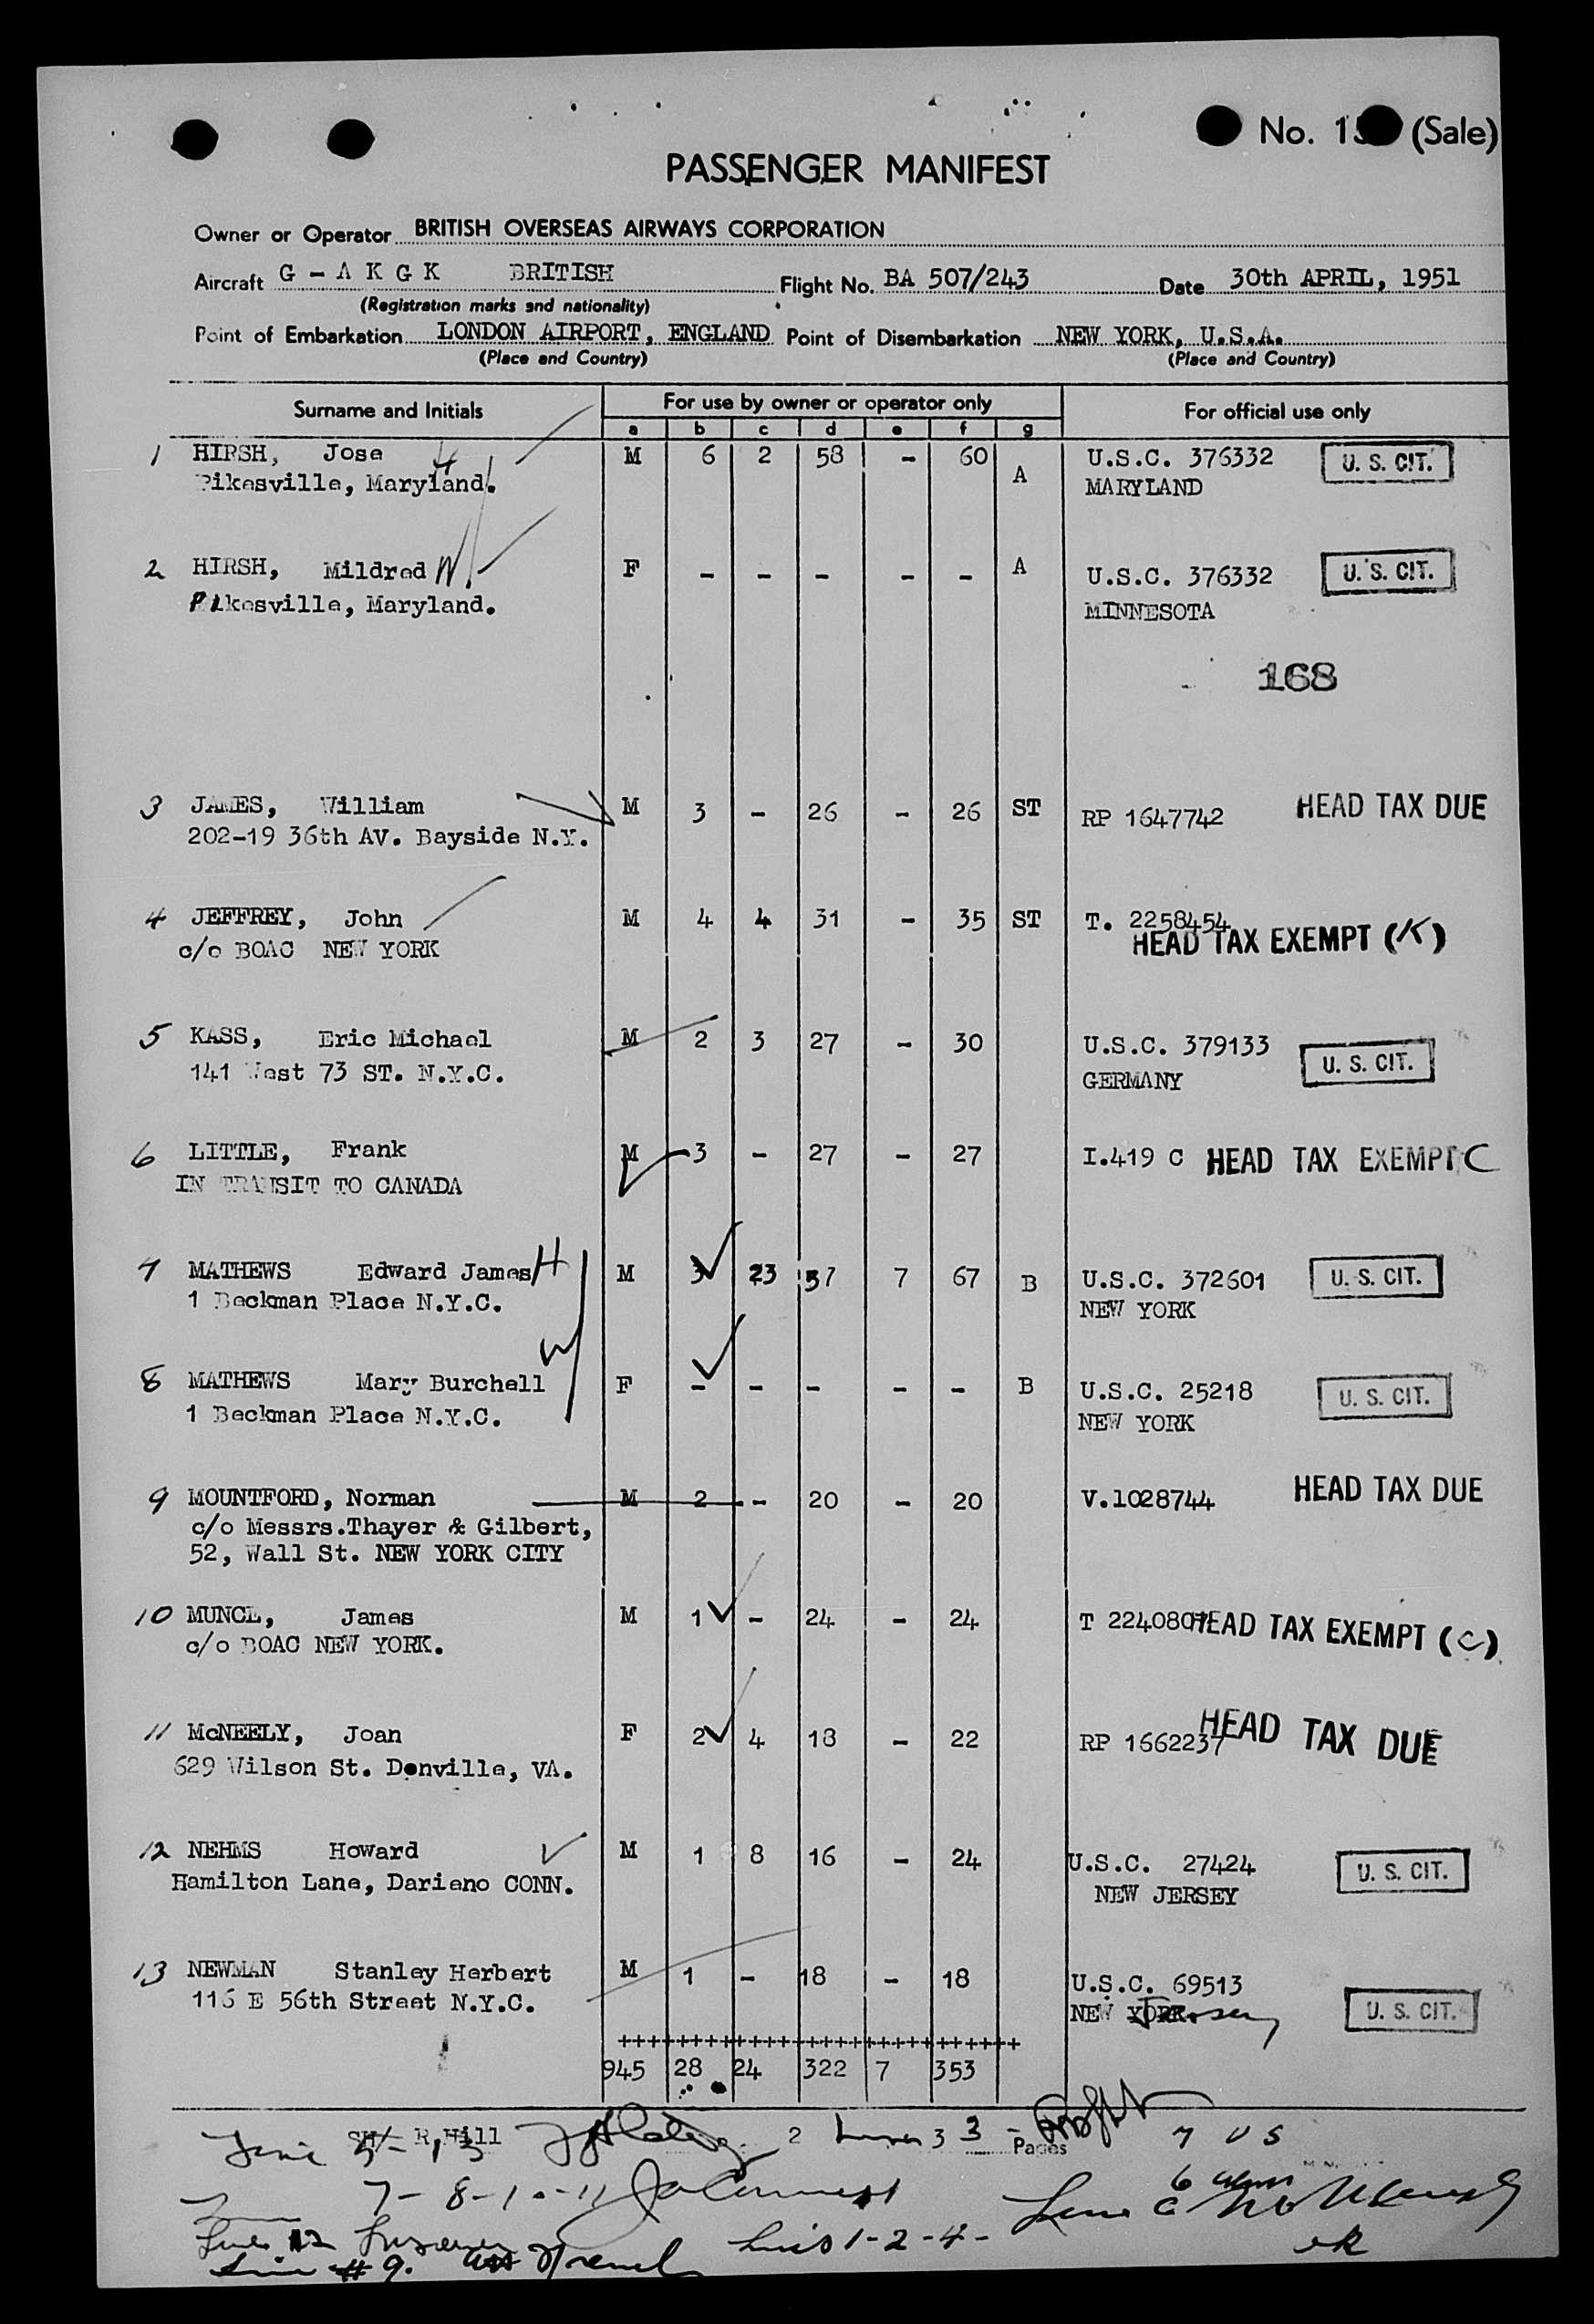 No. 15 (Sale)
PASSENGER MANIFEST
Owner or Operator BRITISH OVERSEAS AIRWAYS CORPORATION
Aircraft G - A K G K BRITISH Flight No. BA 507/243 Date 30th APRIL, 1951
(Registration marks and nationality)
Point of Embarkation LONDON AIRPORT, ENGLAND Point of Disembarkation NEW YORK, U.S.A.
(Place and Country) (Place and Country)
Surname and Initials For use by owner or operator only For official use only
a b c d e f g
1 HIRSH, Jose H M 6 2 58 - 60 A U.S.C. 376332 U. S. CIT.
Pikesville, Maryland. MARYLAND
2 HIRSH, Mildred W F - - - - - A U.S.C. 376332 U. S. CIT.
Pikesville, Maryland. MINNESOTA
168
3 JAMES, William M 3 - 26 - 26 ST RP 1647742 HEAD TAX DUE
202-19 36th AV. Bayside N.Y.
4 JEFFREY, John M 4 4 31 - 35 ST T. 2258454
c/o BOAC NEW YORK HEAD TAX EXEMPT (K)
5 KASS, Eric Michael M 2 3 27 - 30 U.S.C. 379133 U. S. CIT.
141 West 73 ST. N.Y.C. GERMANY
6 LITTLE, Frank M 3 - 27 - 27 I.419 C HEAD TAX EXEMPT C
IN TRANSIT TO CANADA
7 MATHEWS Edward James H M 3 23 37 7 67 B U.S.C. 372601 U. S. CIT.
1 Beekman Place N.Y.C. NEW YORK
W
8 MATHEWS Mary Burchell F - - - - - B U.S.C. 25218 U. S. CIT.
1 Beekman Place N.Y.C. NEW YORK
9 MOUNTFORD, Norman M 2 - 20 - 20 V.1028744 HEAD TAX DUE
c/o Messrs.Thayer & Gilbert,
52, Wall St. NEW YORK CITY
10 MUNCL, James M 1 - 24 - 24 T 2240807 HEAD TAX EXEMPT (C)
c/o BOAC NEW YORK.
11 McNEELY, Joan F 2 4 18 - 22 RP 1662237 HEAD TAX DUE
629 Wilson St. Donville, VA.
12 NEHMS Howard M 1 8 16 - 24 U.S.C. 27424 U. S. CIT.
Hamilton Lane, Darieno CONN. NEW JERSEY
13 NEWMAN Stanley Herbert M 1 - 18 - 18 U.S.C. 69513
116 E 56th Street N.Y.C. NEW YORK. Jersey U. S. CIT.
++++++++++++++++++++++++++++
945 28 24 322 7 353
SH/ R.Hill 2 3 Pages 7 US
Line 5-13 Line 3
7-8-10-11
Line 12 Lines 1-2-4-
Line # 9. ok